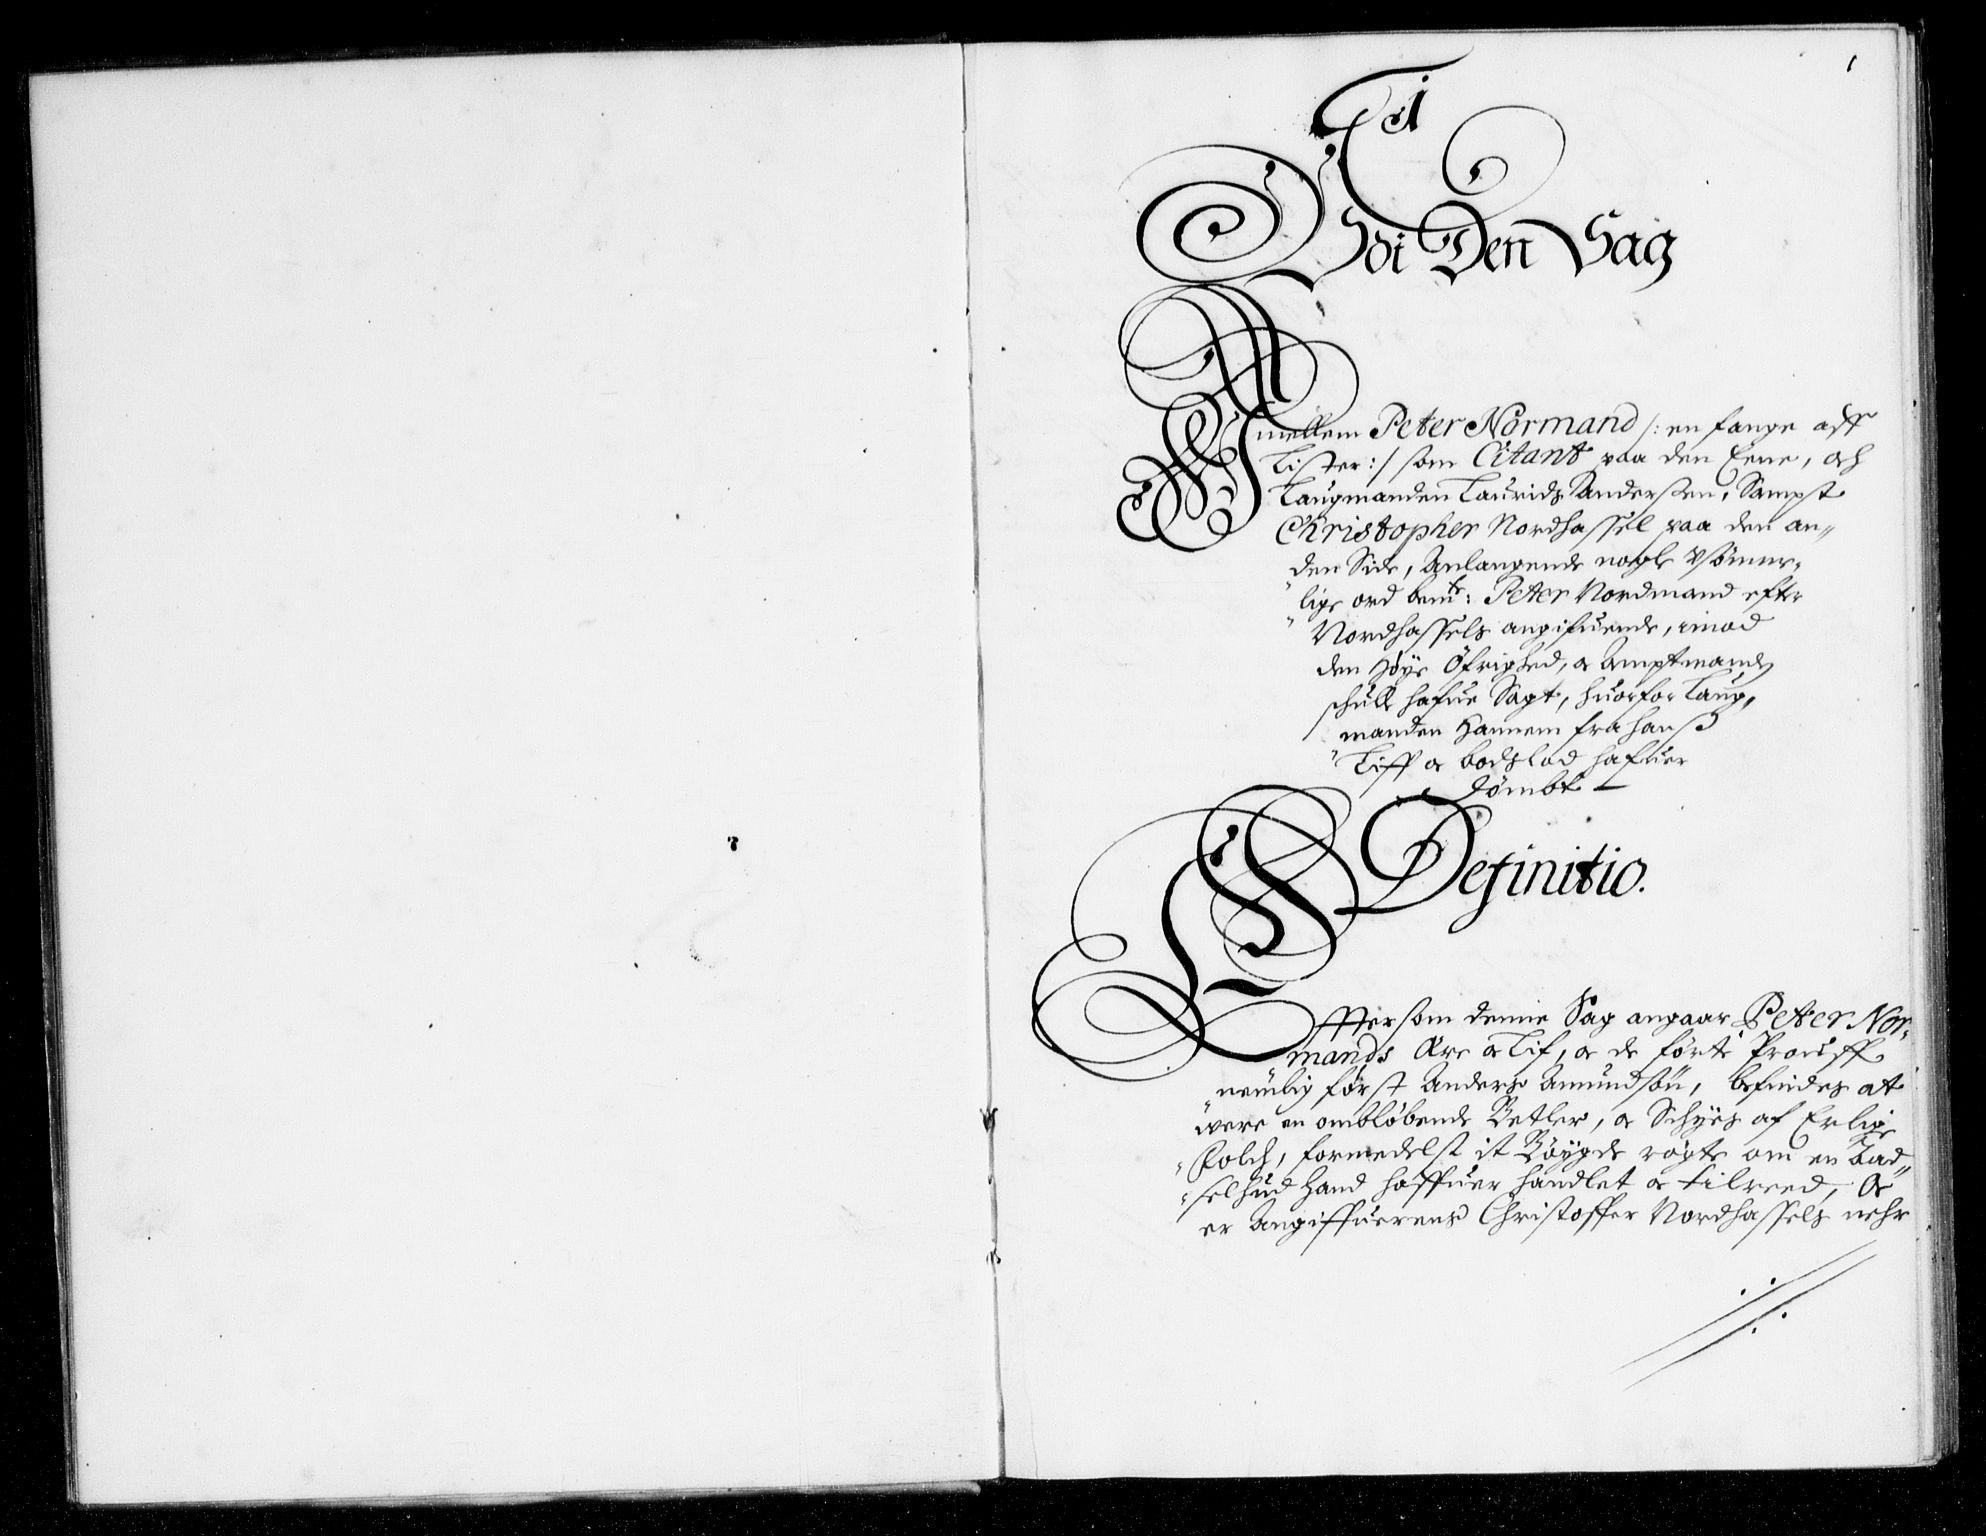 1
Udi Den Sag
Imellem Peter Normand /: en fange aff
Lister :/ som Citant paa den Eene, och
Laugmanden Laurids Anderssen, Sampt
Christopher Nordhassel paa den an„
den Side, Anlangende nogle usömme„
lige ord bemte: Peter Nordmand efter
Nordhassels angifuende, imod
den Høye Öfrighed, oc Amptmand
schulle hafue Sagt, huorfor Laug„
manden Hannem fra hans
Liff oc bodslod hafuer
dömbt
Definitio.
Effterssom denne Sag angaar Peter Nor„
mands Ære oc Lif, oc de förte Prouff
nemlig först Anders Amundsön, befindes at
were en ombløbende Betler, oc Schyes af Erlige
Folch, formedelst it Böygde rögte om en
hud Hand haffuer handlet oc tilreed, Oc
er Angiffuerens Christoffer Nordhassels nehr